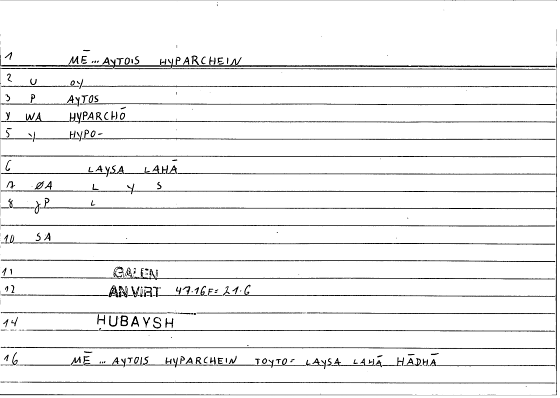 1 MĒ... AYTOIS HYPARCHEIN
2 U OY
3 P AYTOS
4 WA HYPARCHŌ
5 Y HYPO-
6 LAYSA LAHĀ
7 ØA L Y S
8 JP L
10 SA
11 GALEN
12 AN VIRT 47.16F= 21.6
14 HUBAYSH
16 MĒ ... AYTOIS HYPARCHEIN TOYTO= LAYSA LAHĀ HĀDHĀ